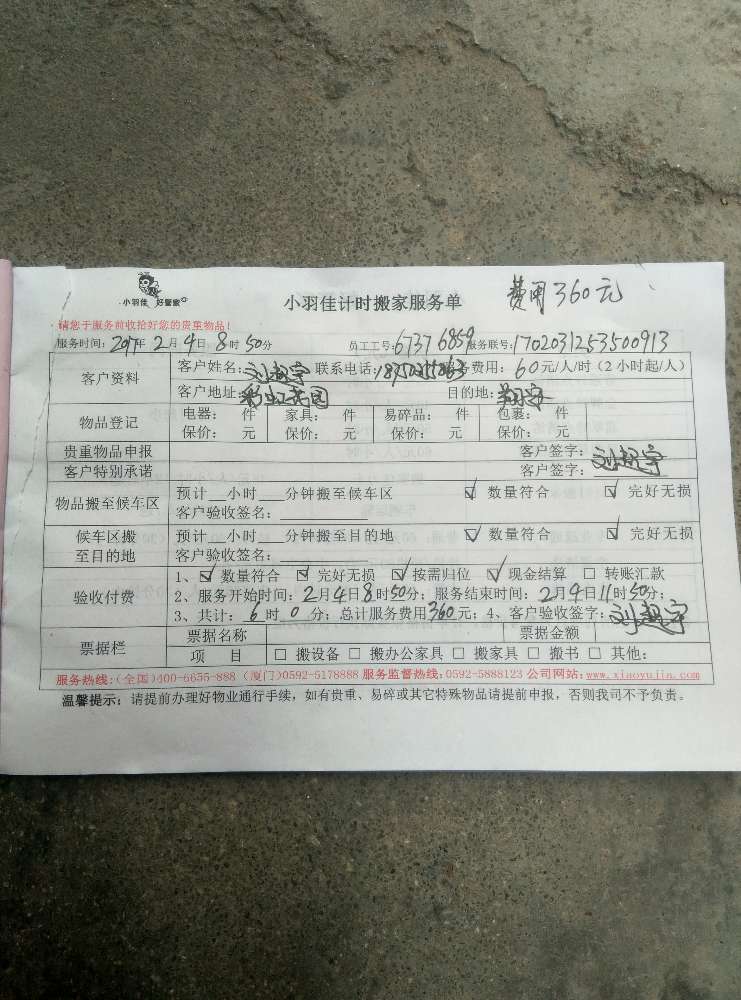 小羽佳 好管家
小羽佳计时搬家服务单
费用360元
请您于服务前收拾好您的贵重物品!
服务时间: 2017年 2月 4日 8时 50分 员工工号: 6737 6859 服务联号: 1702031253500913
客户资料 客户姓名: 刘超宇 联系电话: 服务费用: 60元/人/时(2小时起/人)
客户地址: 彩虹花园 目的地: 翔安
物品登记 电器: 件 家具: 件 易碎品: 件 包裹: 件
保价: 元 保价: 元 保价: 元 保价: 元
贵重物品申报 客户签字:
客户特别承诺 客户签字: 刘超宇
物品搬至候车区 预计__小时___分钟搬至候车区 ☑ 数量符合 ☑ 完好无损
客户验收签名:
候车区搬至目的地 预计__小时___分钟搬至目的地 ☑ 数量符合 ☑ 完好无损
客户验收签名:
验收付费 1、☑ 数量符合 ☑ 完好无损 ☑ 按需归位 ☑ 现金结算 □ 转账汇款
2、服务开始时间: 2月4日8时50分; 服务结束时间: 2月4日11时50分;
3、共计: 6 时 0 分; 总计服务费用360元; 4、客户验收签字: 刘超宇
票据栏 票据名称 票据金额
项 目 □ 搬设备 □ 搬办公家具 □ 搬家具 □ 搬书 □ 其他:
服务热线:(全国)400-6655-888 (厦门)0592-5178888 服务监督热线:0592-5888123 公司网站:www.xiaoyujia.com
温馨提示: 请提前办理好物业通行手续，如有贵重、易碎或其它特殊物品请提前申报，否则我司不予负责。